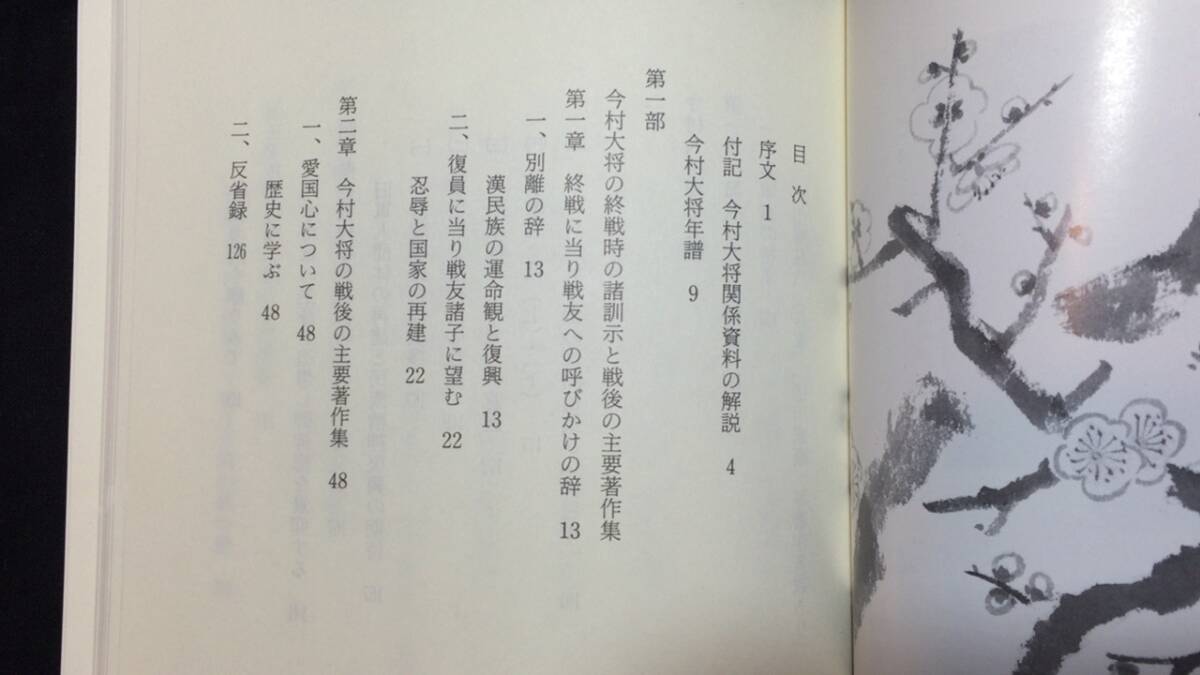 目次
序文 1
付記 今村大将関係資料の解説 4
今村大将年譜 9
第一部
今村大将の終戦時の諸訓示と戦後の主要著作集
第一章 終戦に当り戦友への呼びかけの辞 13
一、別離の辞 13
漢民族の運命観と復興 13
二、復員に当り戦友諸子に望む 22
忍辱と国家の再建 22
第二章 今村大将の戦後の主要著作集 48
一、愛国心について 48
歴史に学ぶ 48
二、反省録 126